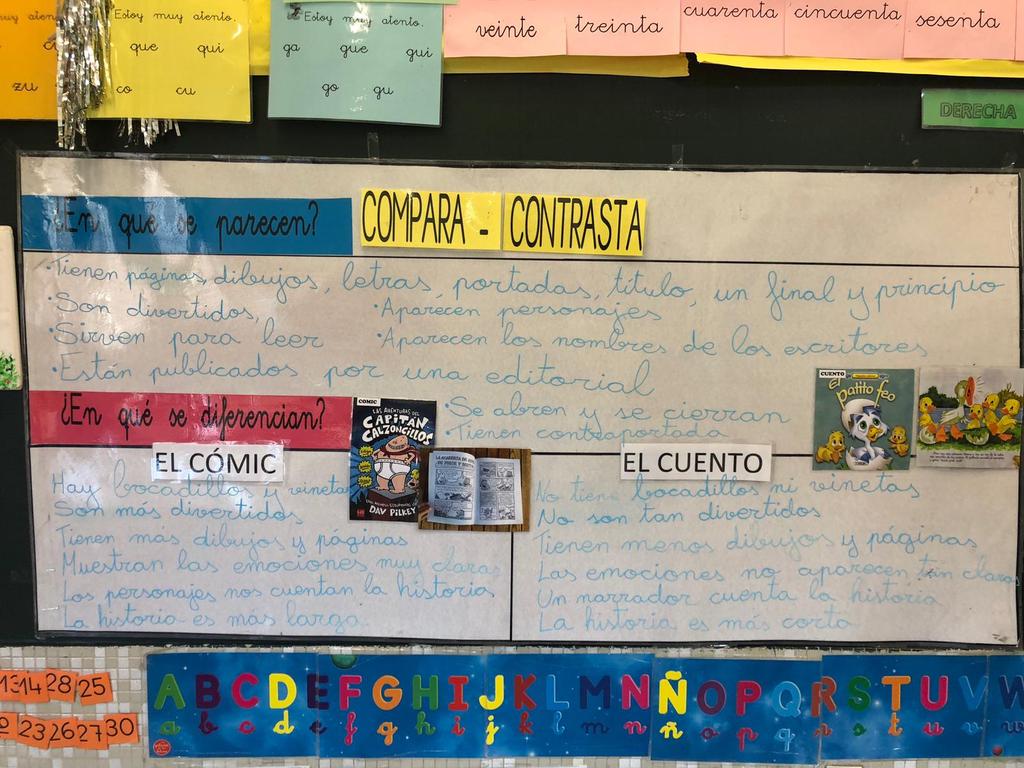 Estoy muy atento.
que qui
co cu
zu
Estoy muy atento.
ga gue gui
go gu
veinte
treinta
cuarenta
cincuenta
sesenta
DERECHA
¿En qué se parecen?
COMPARA - CONTRASTA
·Tienen páginas, dibujos, letras, portadas, título, un final y principio
·Son divertidos,
·Aparecen personajes
·Sirven para leer
·Aparecen los nombres de los escritores
·Están publicados por una editorial
¿En qué se diferencian?
·Se abren y se cierran
·Tienen contraportada
COMIC
LAS AVENTURAS DEL
CAPITÁN
CALZONCILLOS
DAV PILKEY
CUENTO
el
patito feo
EL CÓMIC
Hay bocadillos y vinetas
Son más divertidos
Tienen más dibujos y páginas
Muestran las emociones muy claras
Los personajes nos cuentan la historia
La historia es más larga.
EL CUENTO
No tiene bocadillos ni vinetas
No son tan divertidos
Tienen menos dibujos y páginas
Las emociones no aparecen tan claras
Un narrador cuenta la historia
La historia es más corta
13 14 28 25
23 26 27 30
A B C D E F G H I J K L M N Ñ O P Q R S T U V W
a b c d e f g h i j k l m n ñ o p q r s t u v